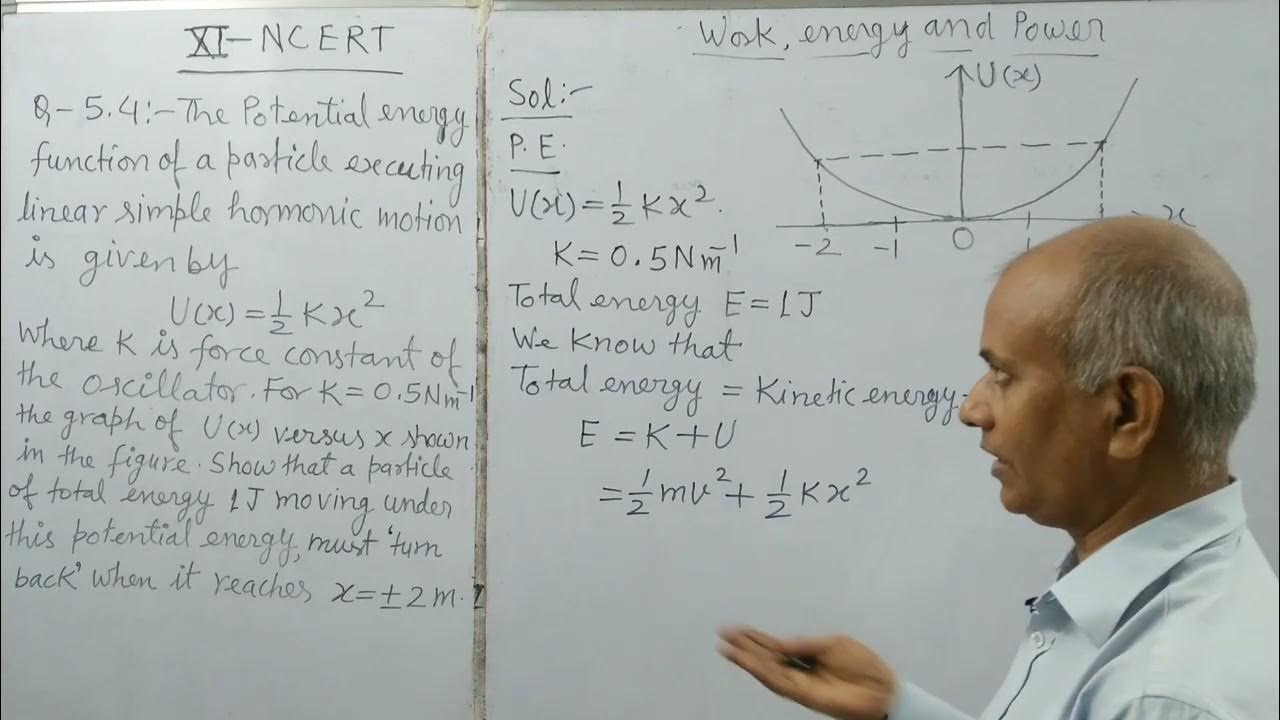 XI-NCERT
Q-5.4:-The Potential energy
function of a particle executing
linear simple hormonic motion
is given by
U(x)=½Kx²
Where K is force constant of
the oscillator. For K=0.5Nm⁻¹
the graph of U(x) versus x shown
in the figure. Show that a particle
of total energy 1J moving under
this potential energy, must 'turn
back' when it reaches x=±2m.
Work, energy and Power
Sol:-
U(x)
P.E.
U(x)=½Kx².
-2 -1 0 1
x
K=0.5Nm⁻¹
Total energy E=1J
We Know that
Total energy = Kinetic energy
E=K+U
=½mv²+½Kx²